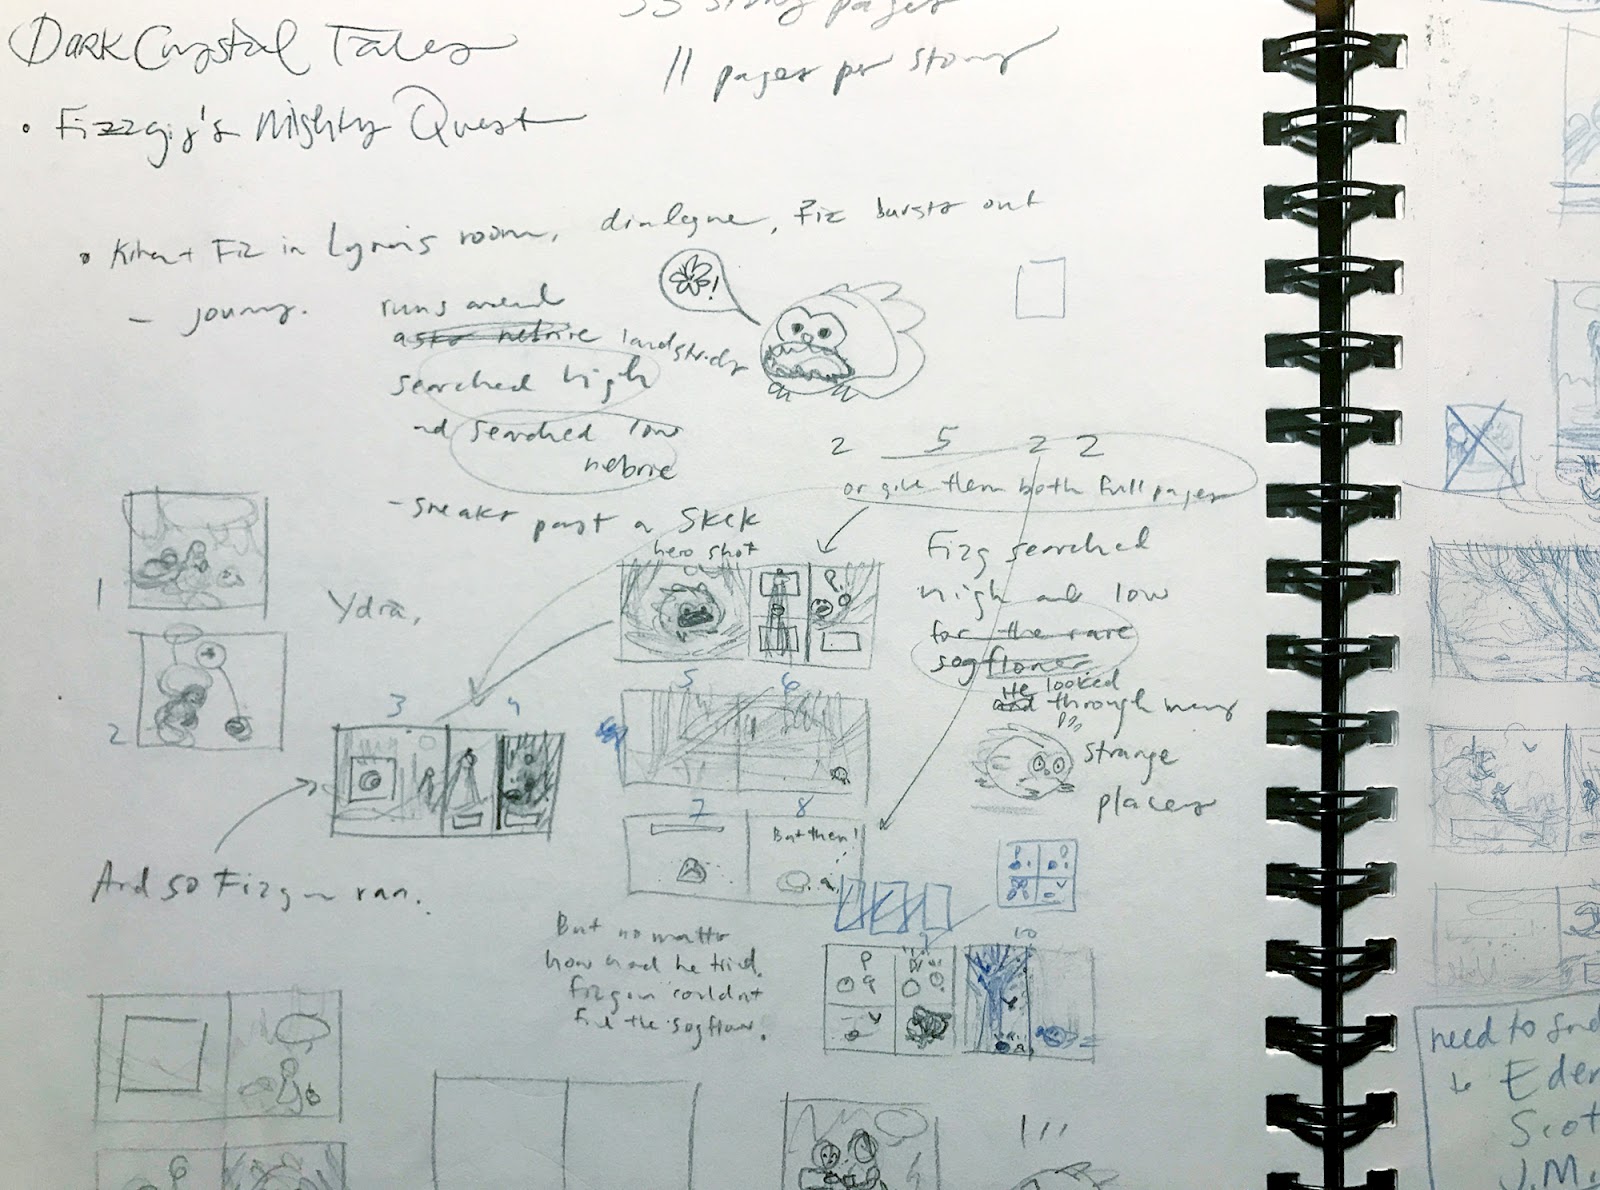 33 story pages
11 pages per story
Dark Crystal Tales
• Fizzgig's Mighty Quest
• Kira + Fiz in room, dialogue, Fiz bursts out
!
- journey.
runs around
nebrie landstrider
searched high
and searched low
nebrie
- sneaks past a Skek
2 5 2 2
or give them both full pages
hero shot
Fizg searched
high and low
for the rare
sogflower
He looked
and through many
strange
places
1
Ydra,
2
3 4
5 6
7 8
But then!
And so Fizzgig ran.
But no matter
how hard he tried.
Fizgig couldn't
find the sogflower.
9 10
need to find
Eden
Scot
J.M.